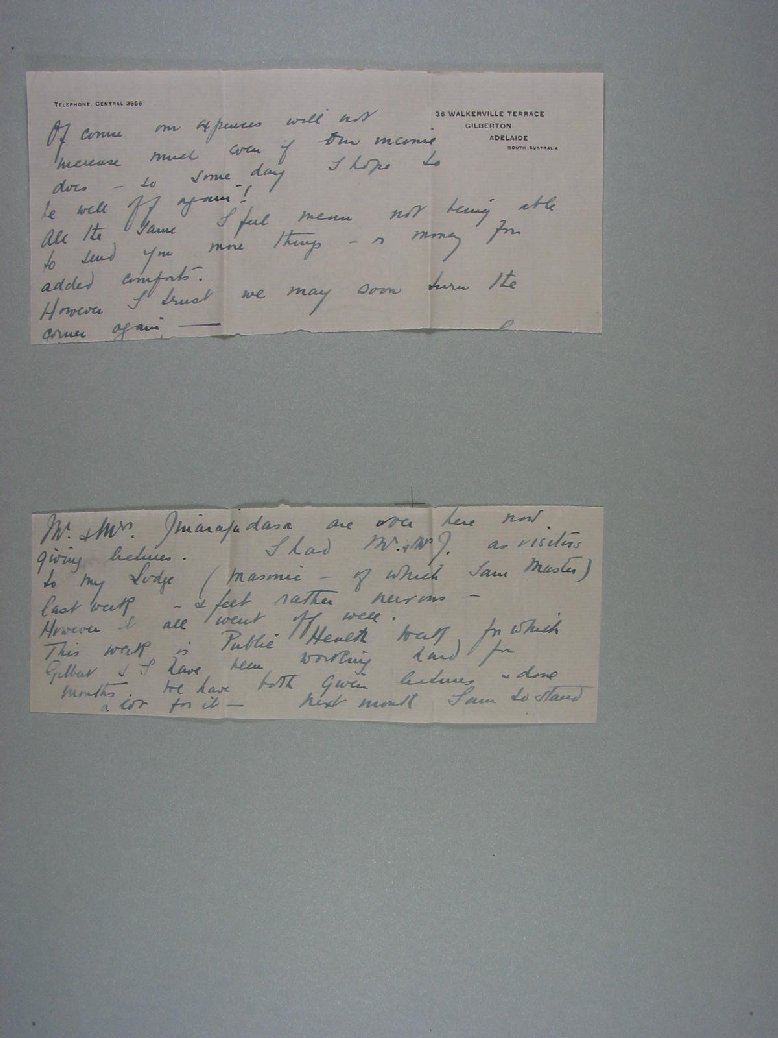 TELEPHONE, CENTRAL 3656
36 WALKERVILLE TERRACE
GILBERTON
ADELAIDE
SOUTH AUSTRALIA
Of course our expenses will not
increase much even if our income
does – so some day I hope to
be well off again!
All the same I feel mean not being able
to send you more things – or money for
added comforts.
However I trust we may soon turn the
corner again, —
Mr. & Mrs. Jinarajadasa are over here now.
giving lectures. I had Mr. & Mrs J. as visitors
to my Lodge (Masonic – of which I am Master)
last week – & felt rather nervous –
However it all went off well.
This week is Public Health week for which
Gilbert & I have been working hard for
months. We have both given lectures & done
a lot for it – Next month I am to stand